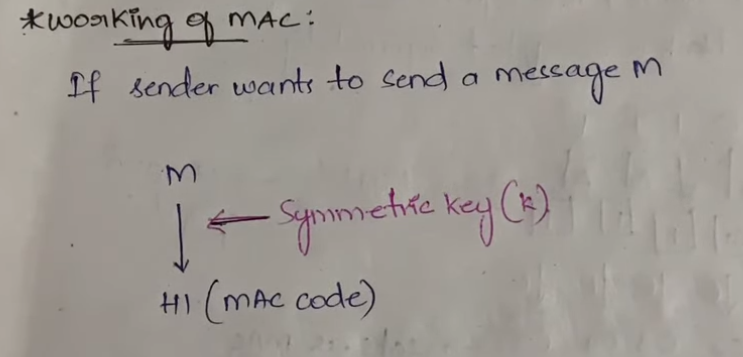 *Working of MAC:
If sender wants to send a message M
M
Symmetric key (k)
H1 (MAC code)